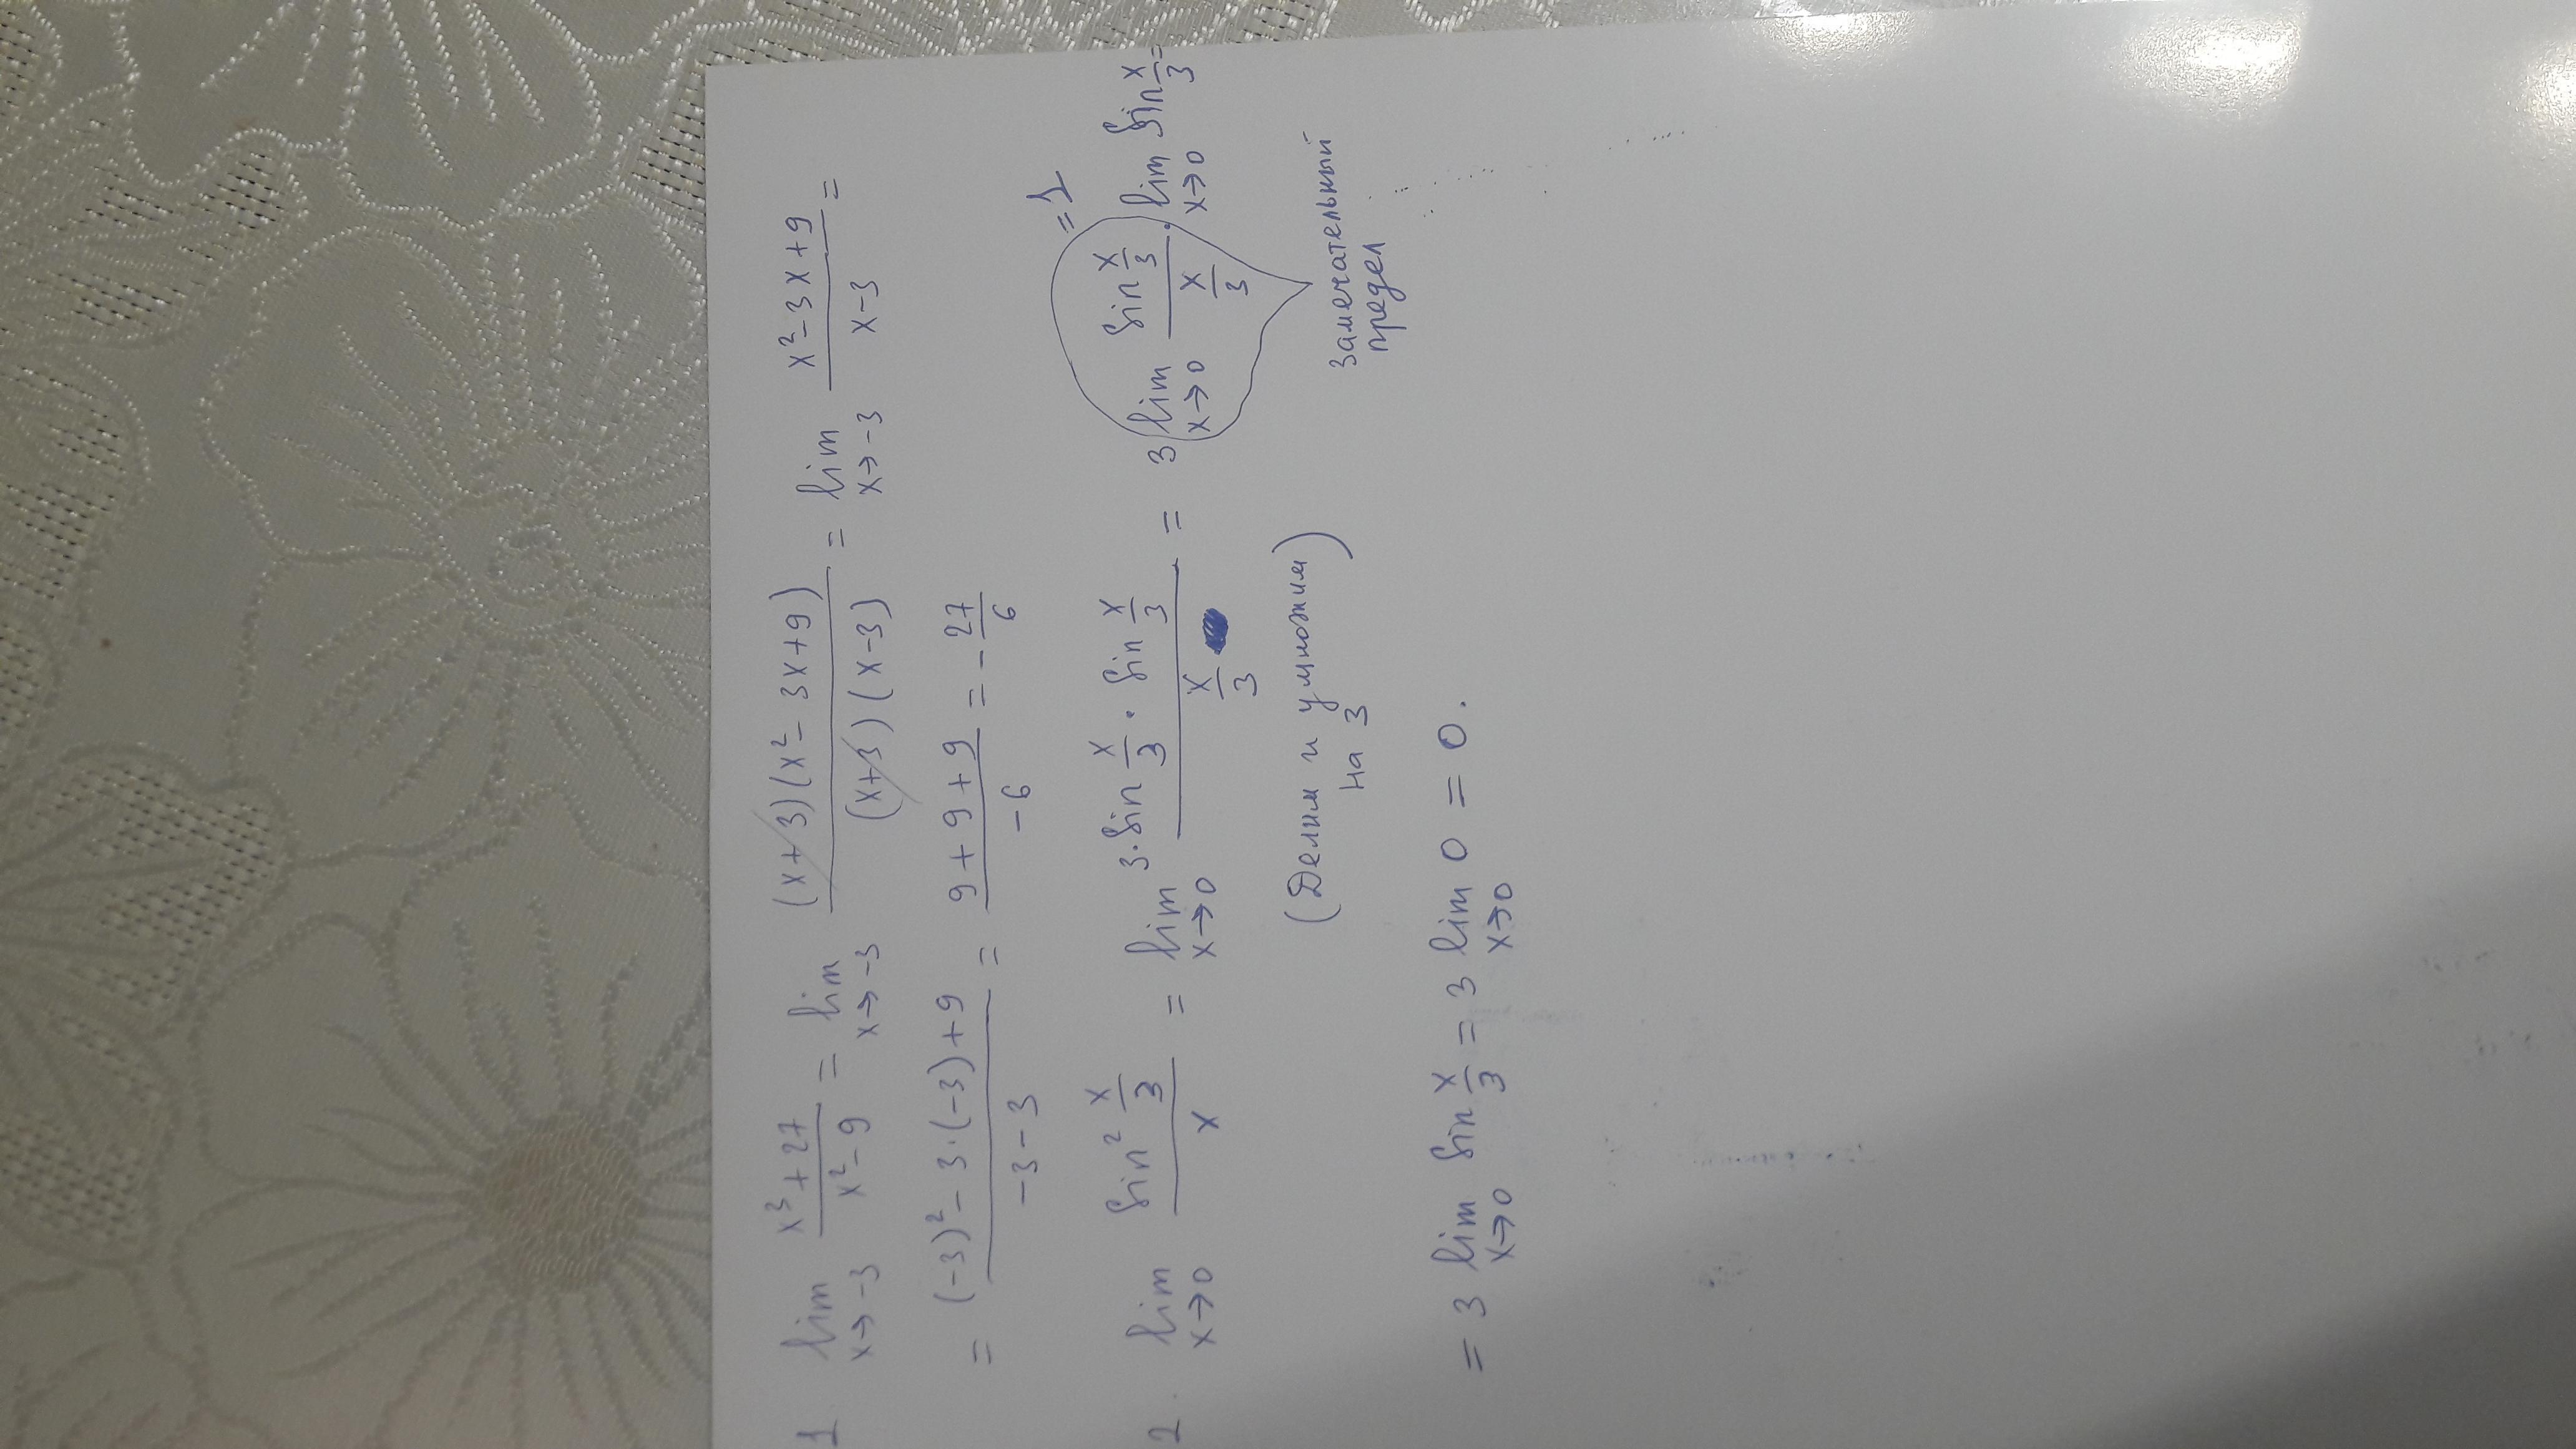 1 lim x→-3 (x³+27)/(x²-9) = lim x→-3 ((x+3)(x²-3x+9))/((x+3)(x-3)) = lim x→-3 (x²-3x+9)/(x-3) =
= ((-3)²-3·(-3)+9)/(-3-3) = (9+9+9)/(-6) = -27/6
2. lim x→0 (sin² x/3)/x = lim x→0 (3·sin x/3 · sin x/3)/(x/3) = 3 lim x→0 (sin x/3)/(x/3) · lim x→0 sin x/3 =
=1
(Делим и умножим
на 3
замечательный
предел
= 3 lim x→0 sin x/3 = 3 lim x→0 0 = 0.